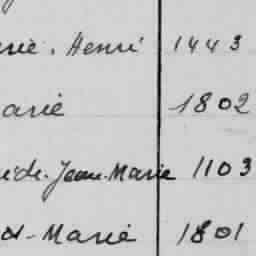 Henri 1443
arie 1802
Jean-Marie 1103
Marie 1801